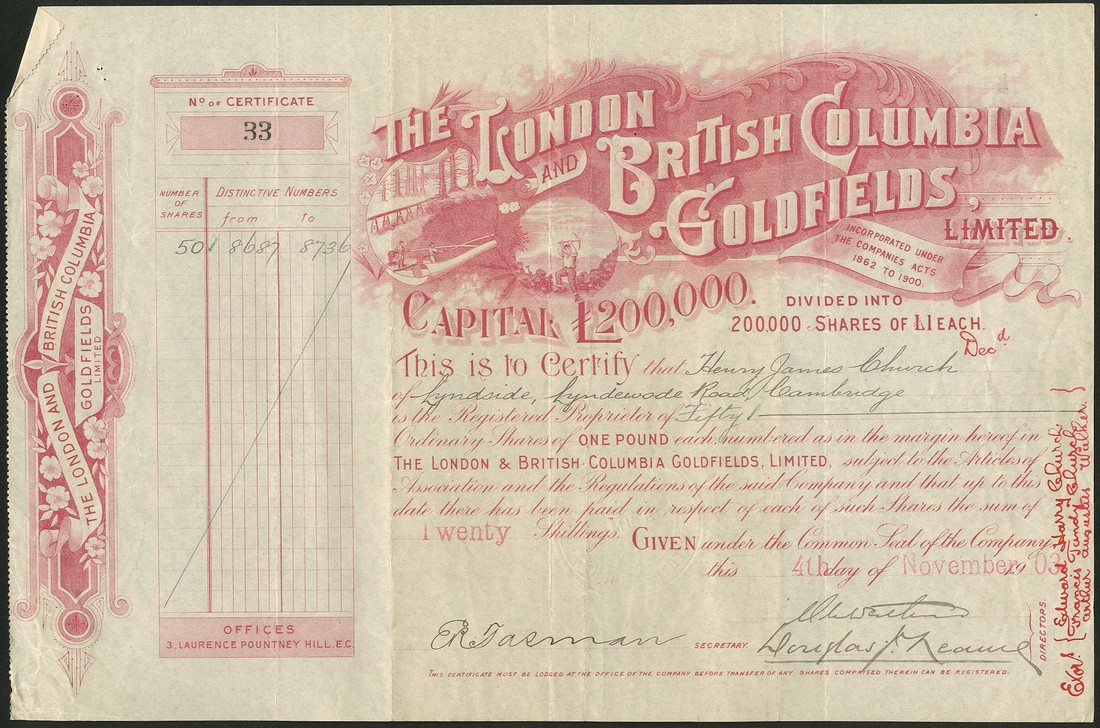 THE LONDON AND BRITISH COLUMBIA
GOLDFIELDS
LIMITED
No OF CERTIFICATE
33
NUMBER OF SHARES
DISTINCTIVE NUMBERS
from to
50 8687 8736
OFFICES
3, LAURENCE POUNTNEY HILL, E.C.
THE LONDON
AND BRITISH COLUMBIA
GOLDFIELDS,
LIMITED.
INCORPORATED UNDER
THE COMPANIES ACTS
1862 TO 1900.
CAPITAL £200,000.
DIVIDED INTO
200.000 SHARES OF £1 EACH.
Decd
This is to Certify that Henry James Church
of Lyndside, Lyndewode Road, Cambridge
is the Registered Proprietor of Fifty
Ordinary Shares of ONE POUND each, numbered as in the margin hereof in
THE LONDON & BRITISH COLUMBIA GOLDFIELDS, LIMITED, subject to the Articles of
Association and the Regulations of the said Company and that up to this
date there has been paid in respect of each of such Shares the sum of
Twenty Shillings. GIVEN under the Common Seal of the Company
this 4th day of November 1903
SECRETARY.
DIRECTORS.
THIS CERTIFICATE MUST BE LODGED AT THE OFFICE OF THE COMPANY BEFORE TRANSFER OF ANY SHARES COMPRISED THEREIN CAN BE REGISTERED.
Exors { Edward Harry Church
Francis Tandy Church
Arthur Augustus Walker. }